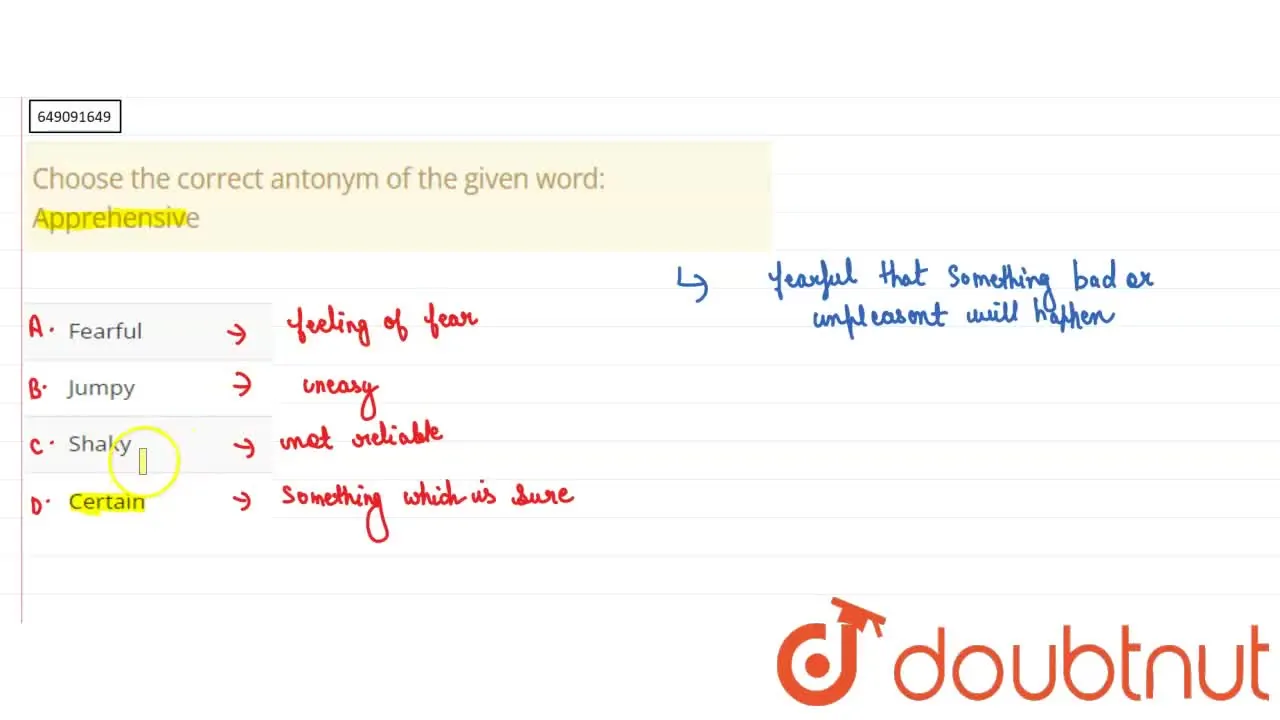 649091649
Choose the correct antonym of the given word:
Apprehensive
↳ fearful that something bad or
unpleasent will happen
A. Fearful → feeling of fear
B. Jumpy → uneasy
C. Shaky → not reliable
D. Certain → Something which is sure
doubtnut